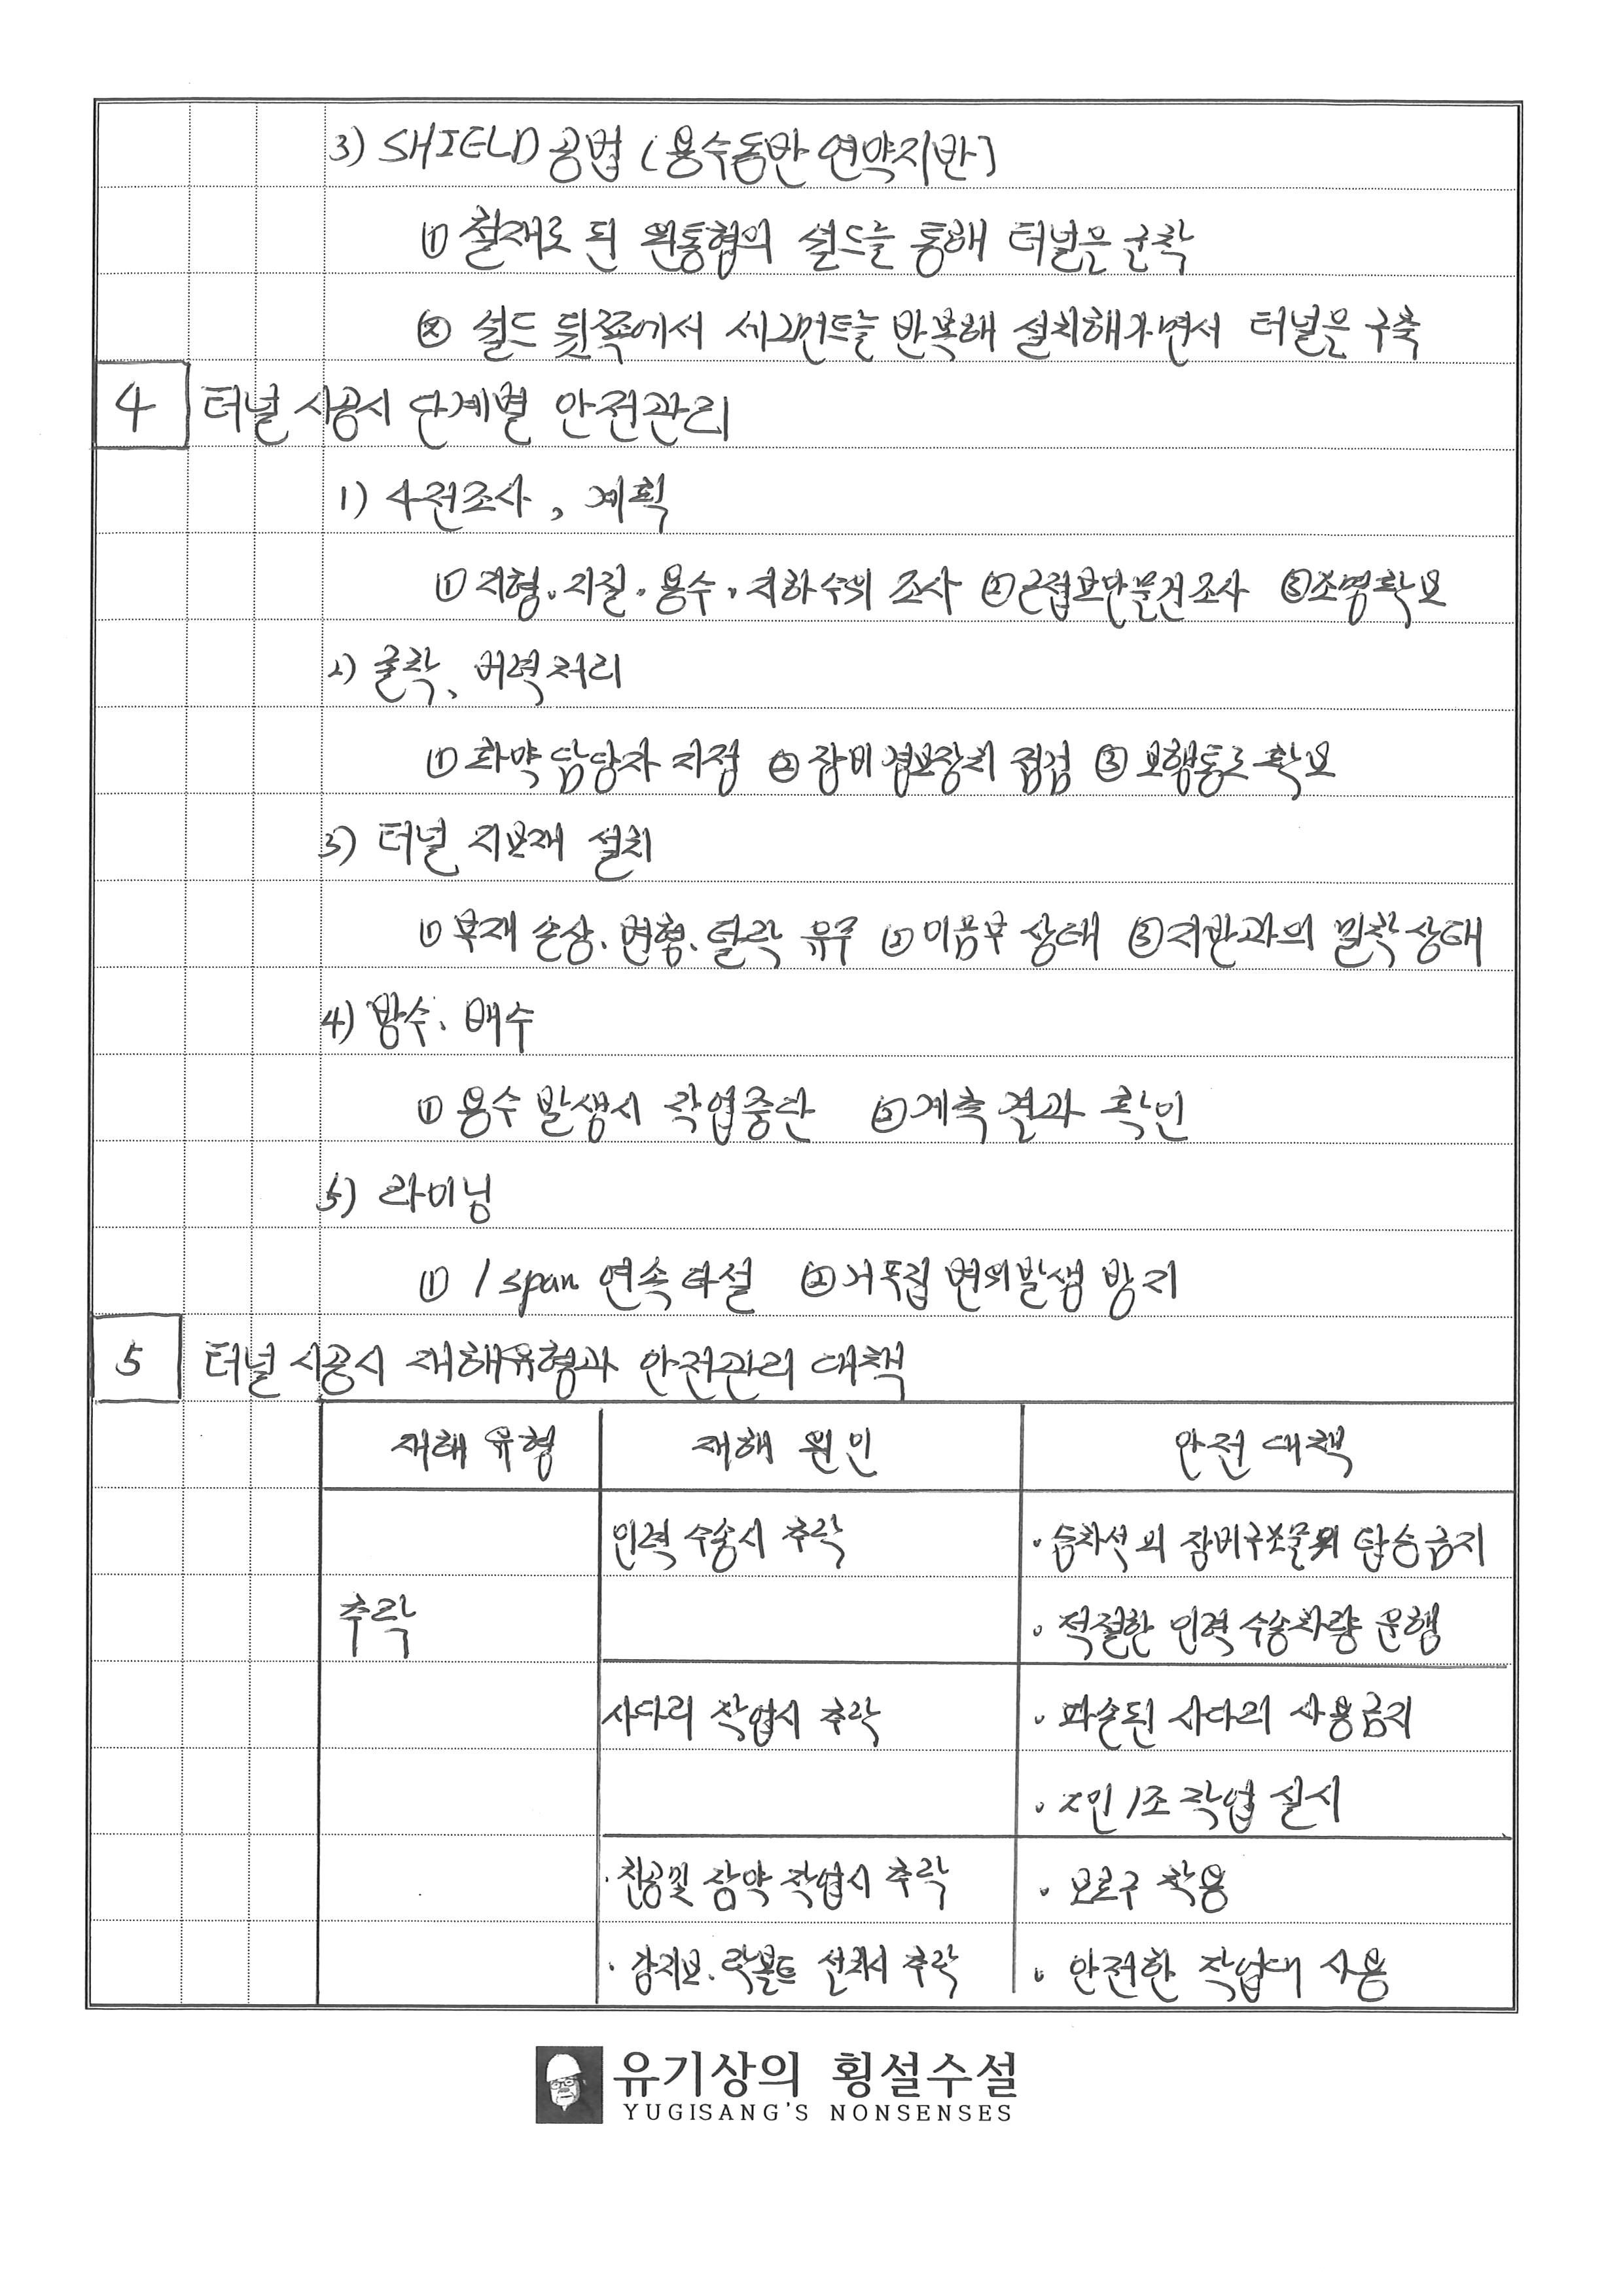 3) SHIELD 공법 (용수동반 연약지반)
① 철재로 된 원통형의 쉴드를 통해 터널을 굴착
② 쉴드 뒷쪽에서 세그먼트를 반복해 설치해가면서 터널을 구축
4 터널 시공시 단계별 안전관리
1) 사전조사, 계획
① 지형·지질·용수·지하수의 조사 ② 근접보안물건조사 ③ 조명확보
2) 굴착, 버력처리
① 화약 담당자 지정 ② 장비 경보장치 점검 ③ 보행통로 확보
3) 터널 지보재 설치
① 부재 손상, 변형, 탈락 유무 ② 이음부 상태 ③ 지반과의 밀착상태
4) 방수, 배수
① 용수 발생시 작업중단 ② 계측 결과 확인
5) 라이닝
① 1 span 연속타설 ② 거푸집 변위발생 방지
5 터널 시공시 재해유형과 안전관리 대책
재해 유형 재해 원인 안전 대책
인력 수송시 추락 · 승차석 외 장비구조물에 탑승금지
추락 · 적절한 인력 수송차량 운행
사다리 작업시 추락 · 파손된 사다리 사용금지
· 2인 1조 작업 실시
· 천공및 장약 작업시 추락 · 보호구 착용
· 강지보, 락볼트 설치시 추락 · 안전한 작업대 사용
유기상의 횡설수설
YUGISANG'S NONSENSES